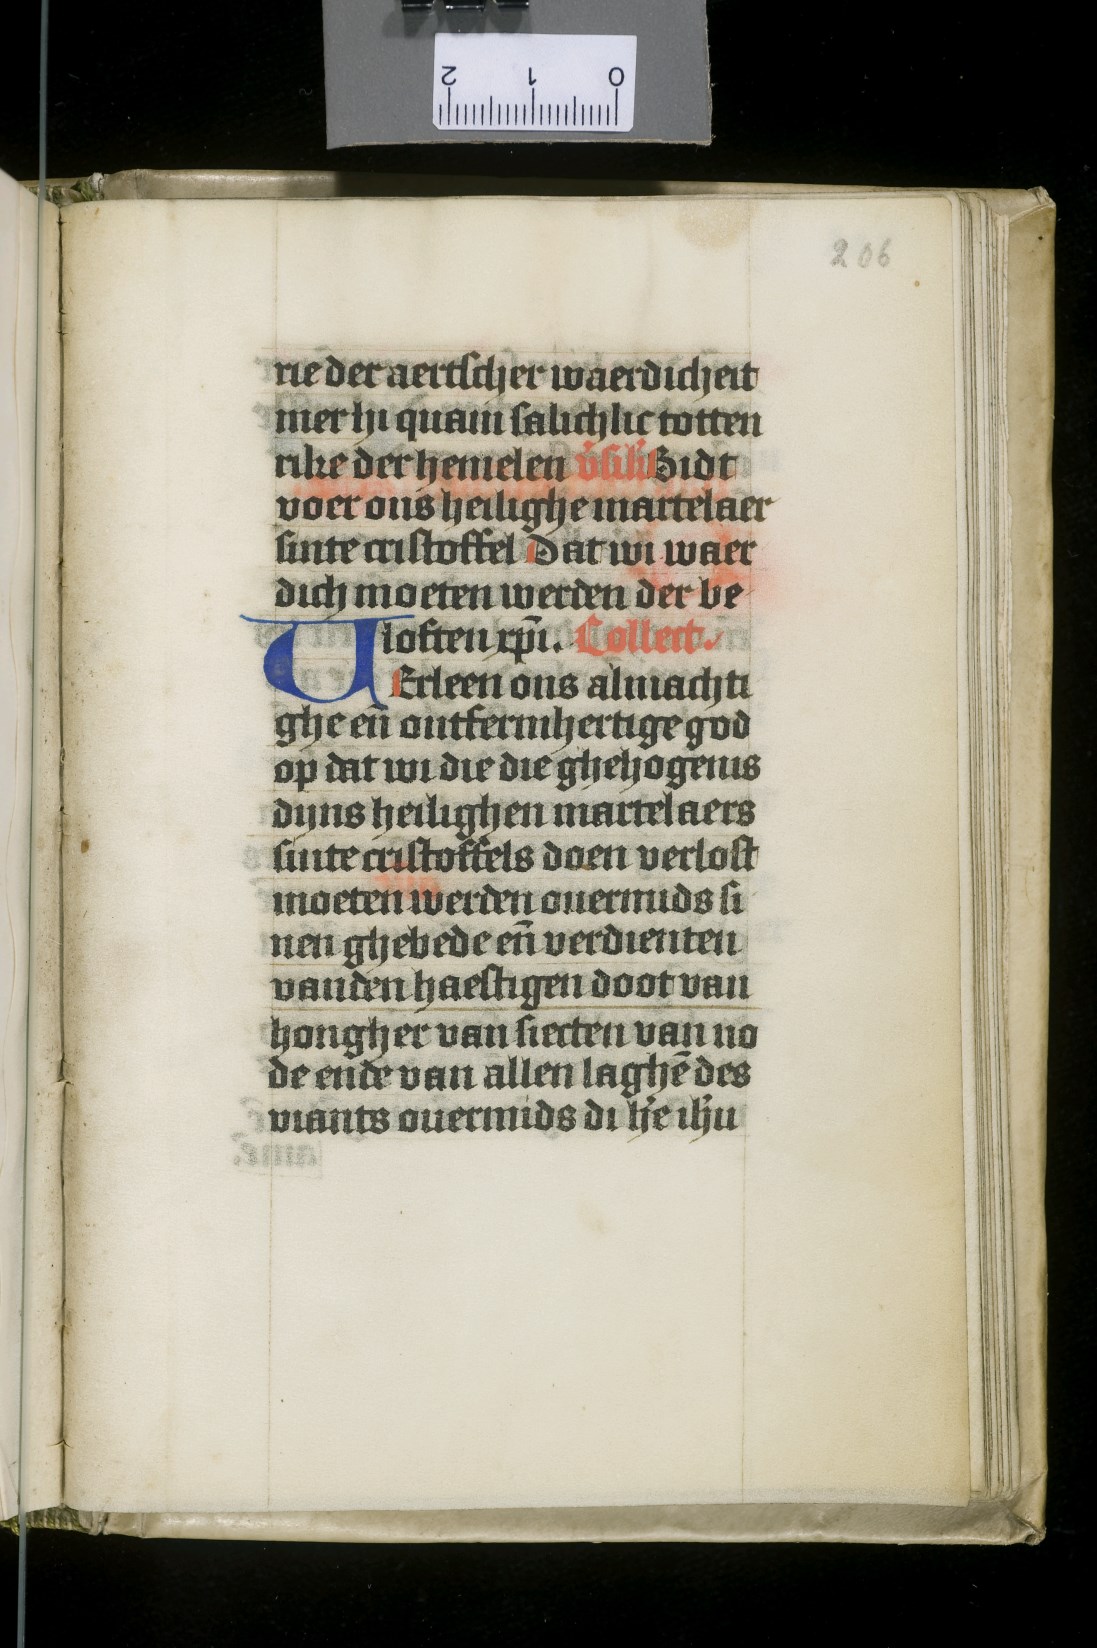 2 1 0
206
rie der aertscher waerdicheit
mer hi quam salichlic totten
rike der hemelen v̓sik̓l Bidt
voer ons heilighe martelaer
sinte cristoffel Dat wi waer
dich moeten werden der be
loften xp̄i. Collect.
VErleen ons almachti
ghe en̄ ontfermhertige god
op dat wi die die ghehogenis
dijns heilighen martelaers
sinte cristoffels doen verlost
moeten werden ouermids si
nen ghebede en̄ verdienten
vanden haestigen doot van
hongher van siecten van no
de ende van allen laghē des
viants ouermids di h̓e ih̓u